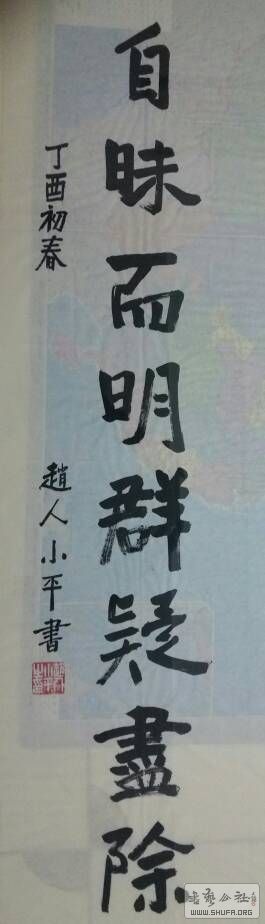 自昧而明群疑盡除
丁酉初春 趙人小平書
WWW.SHUFA.ORG